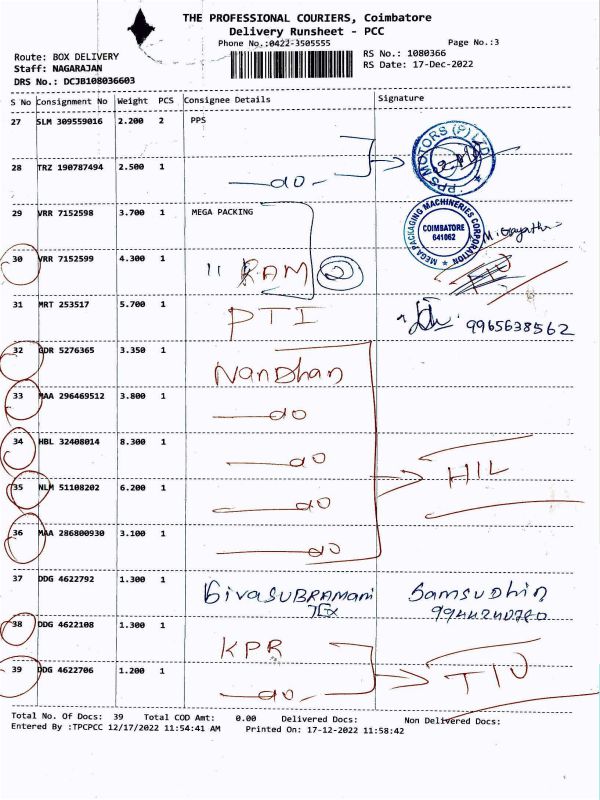 THE PROFESSIONAL COURIERS, Coimbatore
Delivery Runsheet - PCC
Phone No.:0422-3505555
Page No.:3
Route: BOX DELIVERY
RS No.: 1080366
Staff: NAGARAJAN
RS Date: 17-Dec-2022
DRS No.: DCJB108036603
S No Consignment No Weight PCS Consignee Details Signature
27 SLM 309559016 2.200 2 PPS
PPS MOTORS (P) LTD
28 TRZ 190787494 2.500 1 do
29 VRR 7152598 3.700 1 MEGA PACKING
MEGA PACKAGING MACHINERIES CORPORATION
COIMBATORE
641062
30 VRR 7152599 4.300 1 " RAM 2
31 MRT 253517 5.700 1 PTI 9965638562
32 CDR 5276365 3.350 1 Nandhan
33 MAA 296469512 3.800 1 do
34 HBL 32408014 8.300 1 do HIL
35 NLM 51108202 6.200 1 do
36 MAA 286800930 3.100 1 do
37 DDG 4622792 1.300 1 SivaSUBRAMani Samsudhin
Tex
38 DDG 4622108 1.300 1 KPR
39 DDG 4622706 1.200 1 do TIU
Total No. Of Docs: 39 Total COD Amt: 0.00 Delivered Docs: Non Delivered Docs:
Entered By :TPCPCC 12/17/2022 11:54:41 AM Printed On: 17-12-2022 11:58:42